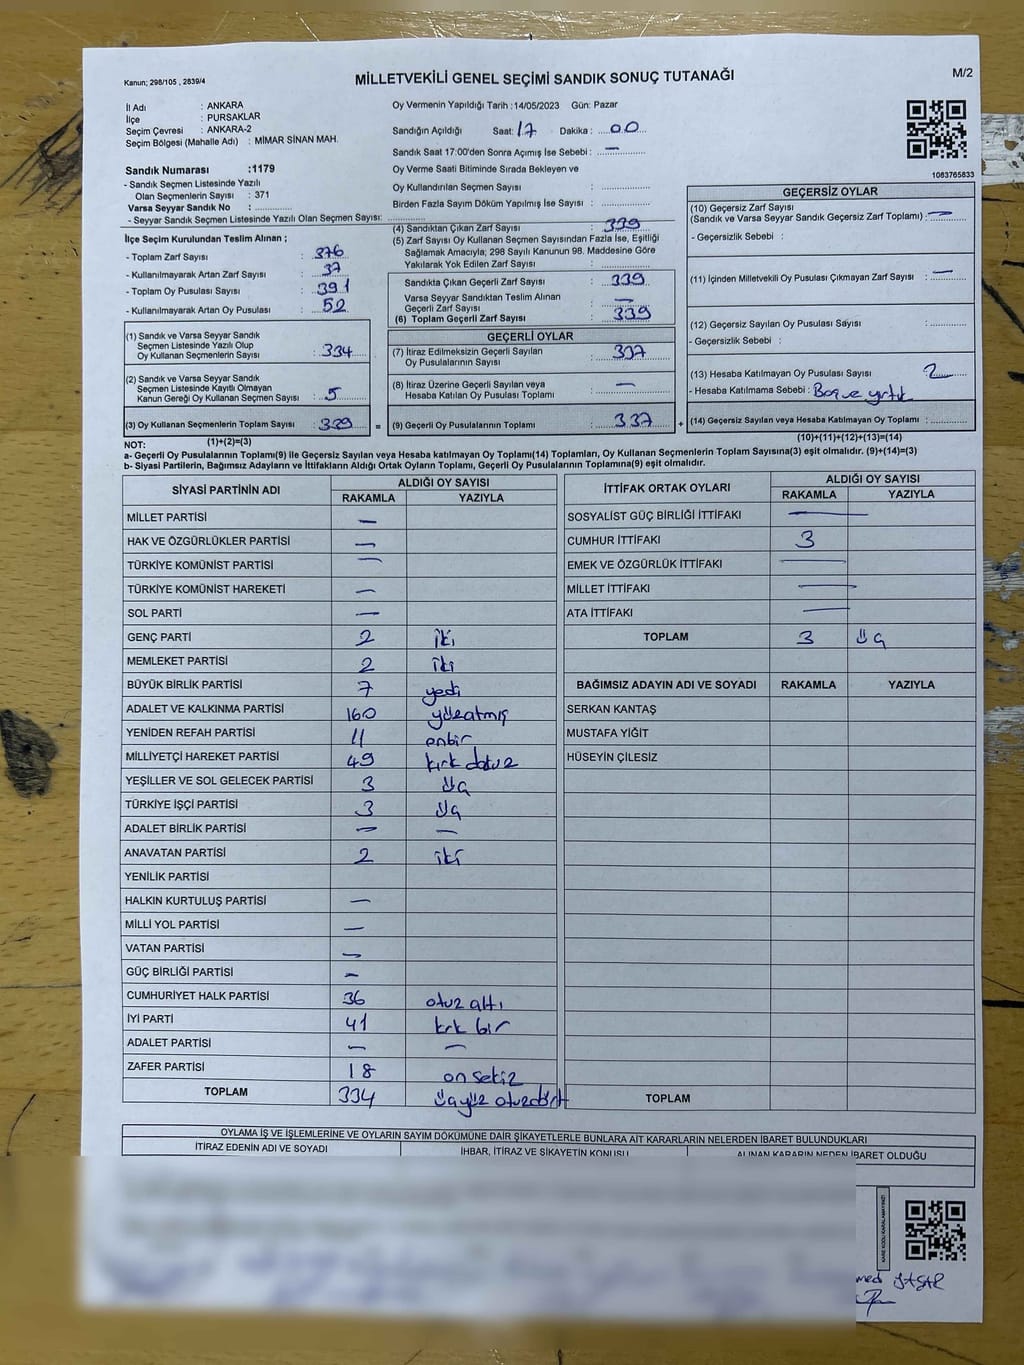 Kanun; 298/105 , 2839/4
MİLLETVEKİLİ GENEL SEÇİMİ SANDIK SONUÇ TUTANAĞI
M/2
İl Adı : ANKARA
İlçe : PURSAKLAR
Seçim Çevresi : ANKARA-2
Seçim Bölgesi (Mahalle Adı) : MİMAR SİNAN MAH.
Sandık Numarası :1179
- Sandık Seçmen Listesinde Yazılı
Olan Seçmenlerin Sayısı : 371
Varsa Seyyar Sandık No :
- Seyyar Sandık Seçmen Listesinde Yazılı Olan Seçmen Sayısı:
İlçe Seçim Kurulundan Teslim Alınan ;
- Toplam Zarf Sayısı : 376
- Kullanılmayarak Artan Zarf Sayısı : 37
- Toplam Oy Pusulası Sayısı : 391
- Kullanılmayarak Artan Oy Pusulası : 52
(1) Sandık ve Varsa Seyyar Sandık
Seçmen Listesinde Yazılı Olup
Oy Kullanan Seçmenlerin Sayısı : 334
(2) Sandık ve Varsa Seyyar Sandık
Seçmen Listesinde Kayıtlı Olmayan
Kanun Gereği Oy Kullanan Seçmen Sayısı : 5
(3) Oy Kullanan Seçmenlerin Toplam Sayısı : 339
(1)+(2)=(3)
Oy Vermenin Yapıldığı Tarih :14/05/2023 Gün: Pazar
Sandığın Açıldığı Saat: 17 Dakika : 00
Sandık Saat 17:00'den Sonra Açımış İse Sebebi : —
Oy Verme Saati Bitiminde Sırada Bekleyen ve
Oy Kullandırılan Seçmen Sayısı :
Birden Fazla Sayım Döküm Yapılmış İse Sayısı :
(4) Sandıktan Çıkan Zarf Sayısı : 339
(5) Zarf Sayısı Oy Kullanan Seçmen Sayısından Fazla İse, Eşitliği
Sağlamak Amacıyla; 298 Sayılı Kanunun 98. Maddesine Göre
Yakılarak Yok Edilen Zarf Sayısı :
Sandıkta Çıkan Geçerli Zarf Sayısı : 339
Varsa Seyyar Sandıktan Teslim Alınan
Geçerli Zarf Sayısı : —
(6) Toplam Geçerli Zarf Sayısı : 339
=
GEÇERLİ OYLAR
(7) İtiraz Edilmeksizin Geçerli Sayılan
Oy Pusulalarının Sayısı : 337
(8) İtiraz Üzerine Geçerli Sayılan veya
Hesaba Katılan Oy Pusulası Toplamı : —
(9) Geçerli Oy Pusulalarının Toplamı : 337
+
1063765833
GEÇERSİZ OYLAR
(10) Geçersiz Zarf Sayısı
(Sandık ve Varsa Seyyar Sandık Geçersiz Zarf Toplamı) : —
- Geçersizlik Sebebi :
(11) İçinden Milletvekili Oy Pusulası Çıkmayan Zarf Sayısı : —
(12) Geçersiz Sayılan Oy Pusulası Sayısı :
- Geçersizlik Sebebi :
(13) Hesaba Katılmayan Oy Pusulası Sayısı : 2
- Hesaba Katılmama Sebebi : Boş ve yırtık
(14) Geçersiz Sayılan veya Hesaba Katılmayan Oy Toplamı :
(10)+(11)+(12)+(13)=(14)
NOT:
a- Geçerli Oy Pusulalarının Toplamı(9) ile Geçersiz Sayılan veya Hesaba katılmayan Oy Toplamı(14) Toplamları, Oy Kullanan Seçmenlerin Toplam Sayısına(3) eşit olmalıdır. (9)+(14)=(3)
b- Siyasi Partilerin, Bağımsız Adayların ve İttifakların Aldığı Ortak Oyların Toplamı, Geçerli Oy Pusulalarının Toplamına(9) eşit olmalıdır.
SİYASİ PARTİNİN ADI ALDIĞI OY SAYISI
RAKAMLA YAZIYLA
MİLLET PARTİSİ —
HAK VE ÖZGÜRLÜKLER PARTİSİ —
TÜRKİYE KOMÜNİST PARTİSİ —
TÜRKİYE KOMÜNİST HAREKETİ —
SOL PARTİ —
GENÇ PARTİ 2 iki
MEMLEKET PARTİSİ 2 iki
BÜYÜK BİRLİK PARTİSİ 7 yedi
ADALET VE KALKINMA PARTİSİ 160 yüzatmış
YENİDEN REFAH PARTİSİ 11 onbir
MİLLİYETÇİ HAREKET PARTİSİ 49 kırk dokuz
YEŞİLLER VE SOL GELECEK PARTİSİ 3 üç
TÜRKİYE İŞÇİ PARTİSİ 3 üç
ADALET BİRLİK PARTİSİ — —
ANAVATAN PARTİSİ 2 iki
YENİLİK PARTİSİ
HALKIN KURTULUŞ PARTİSİ —
MİLLİ YOL PARTİSİ —
VATAN PARTİSİ —
GÜÇ BİRLİĞİ PARTİSİ —
CUMHURİYET HALK PARTİSİ 36 otuz altı
İYİ PARTİ 41 kırk bir
ADALET PARTİSİ — —
ZAFER PARTİSİ 18 on sekiz
TOPLAM 334 üçyüz otuzdört
İTTİFAK ORTAK OYLARI ALDIĞI OY SAYISI
RAKAMLA YAZIYLA
SOSYALİST GÜÇ BİRLİĞİ İTTİFAKI —
CUMHUR İTTİFAKI 3
EMEK VE ÖZGÜRLÜK İTTİFAKI —
MİLLET İTTİFAKI —
ATA İTTİFAKI —
TOPLAM 3 üç
BAĞIMSIZ ADAYIN ADI VE SOYADI RAKAMLA YAZIYLA
SERKAN KANTAŞ
MUSTAFA YİĞİT
HÜSEYİN ÇİLESİZ
TOPLAM
OYLAMA İŞ VE İŞLEMLERİNE VE OYLARIN SAYIM DÖKÜMÜNE DAİR ŞİKAYETLERLE BUNLARA AİT KARARLARIN NELERDEN İBARET BULUNDUKLARI
İTİRAZ EDENİN ADI VE SOYADI İHBAR, İTİRAZ VE ŞİKAYETİN KONUSU ALINAN KARARIN NEDEN İBARET OLDUĞU
KARE KODU KARALAMAYINIZ!